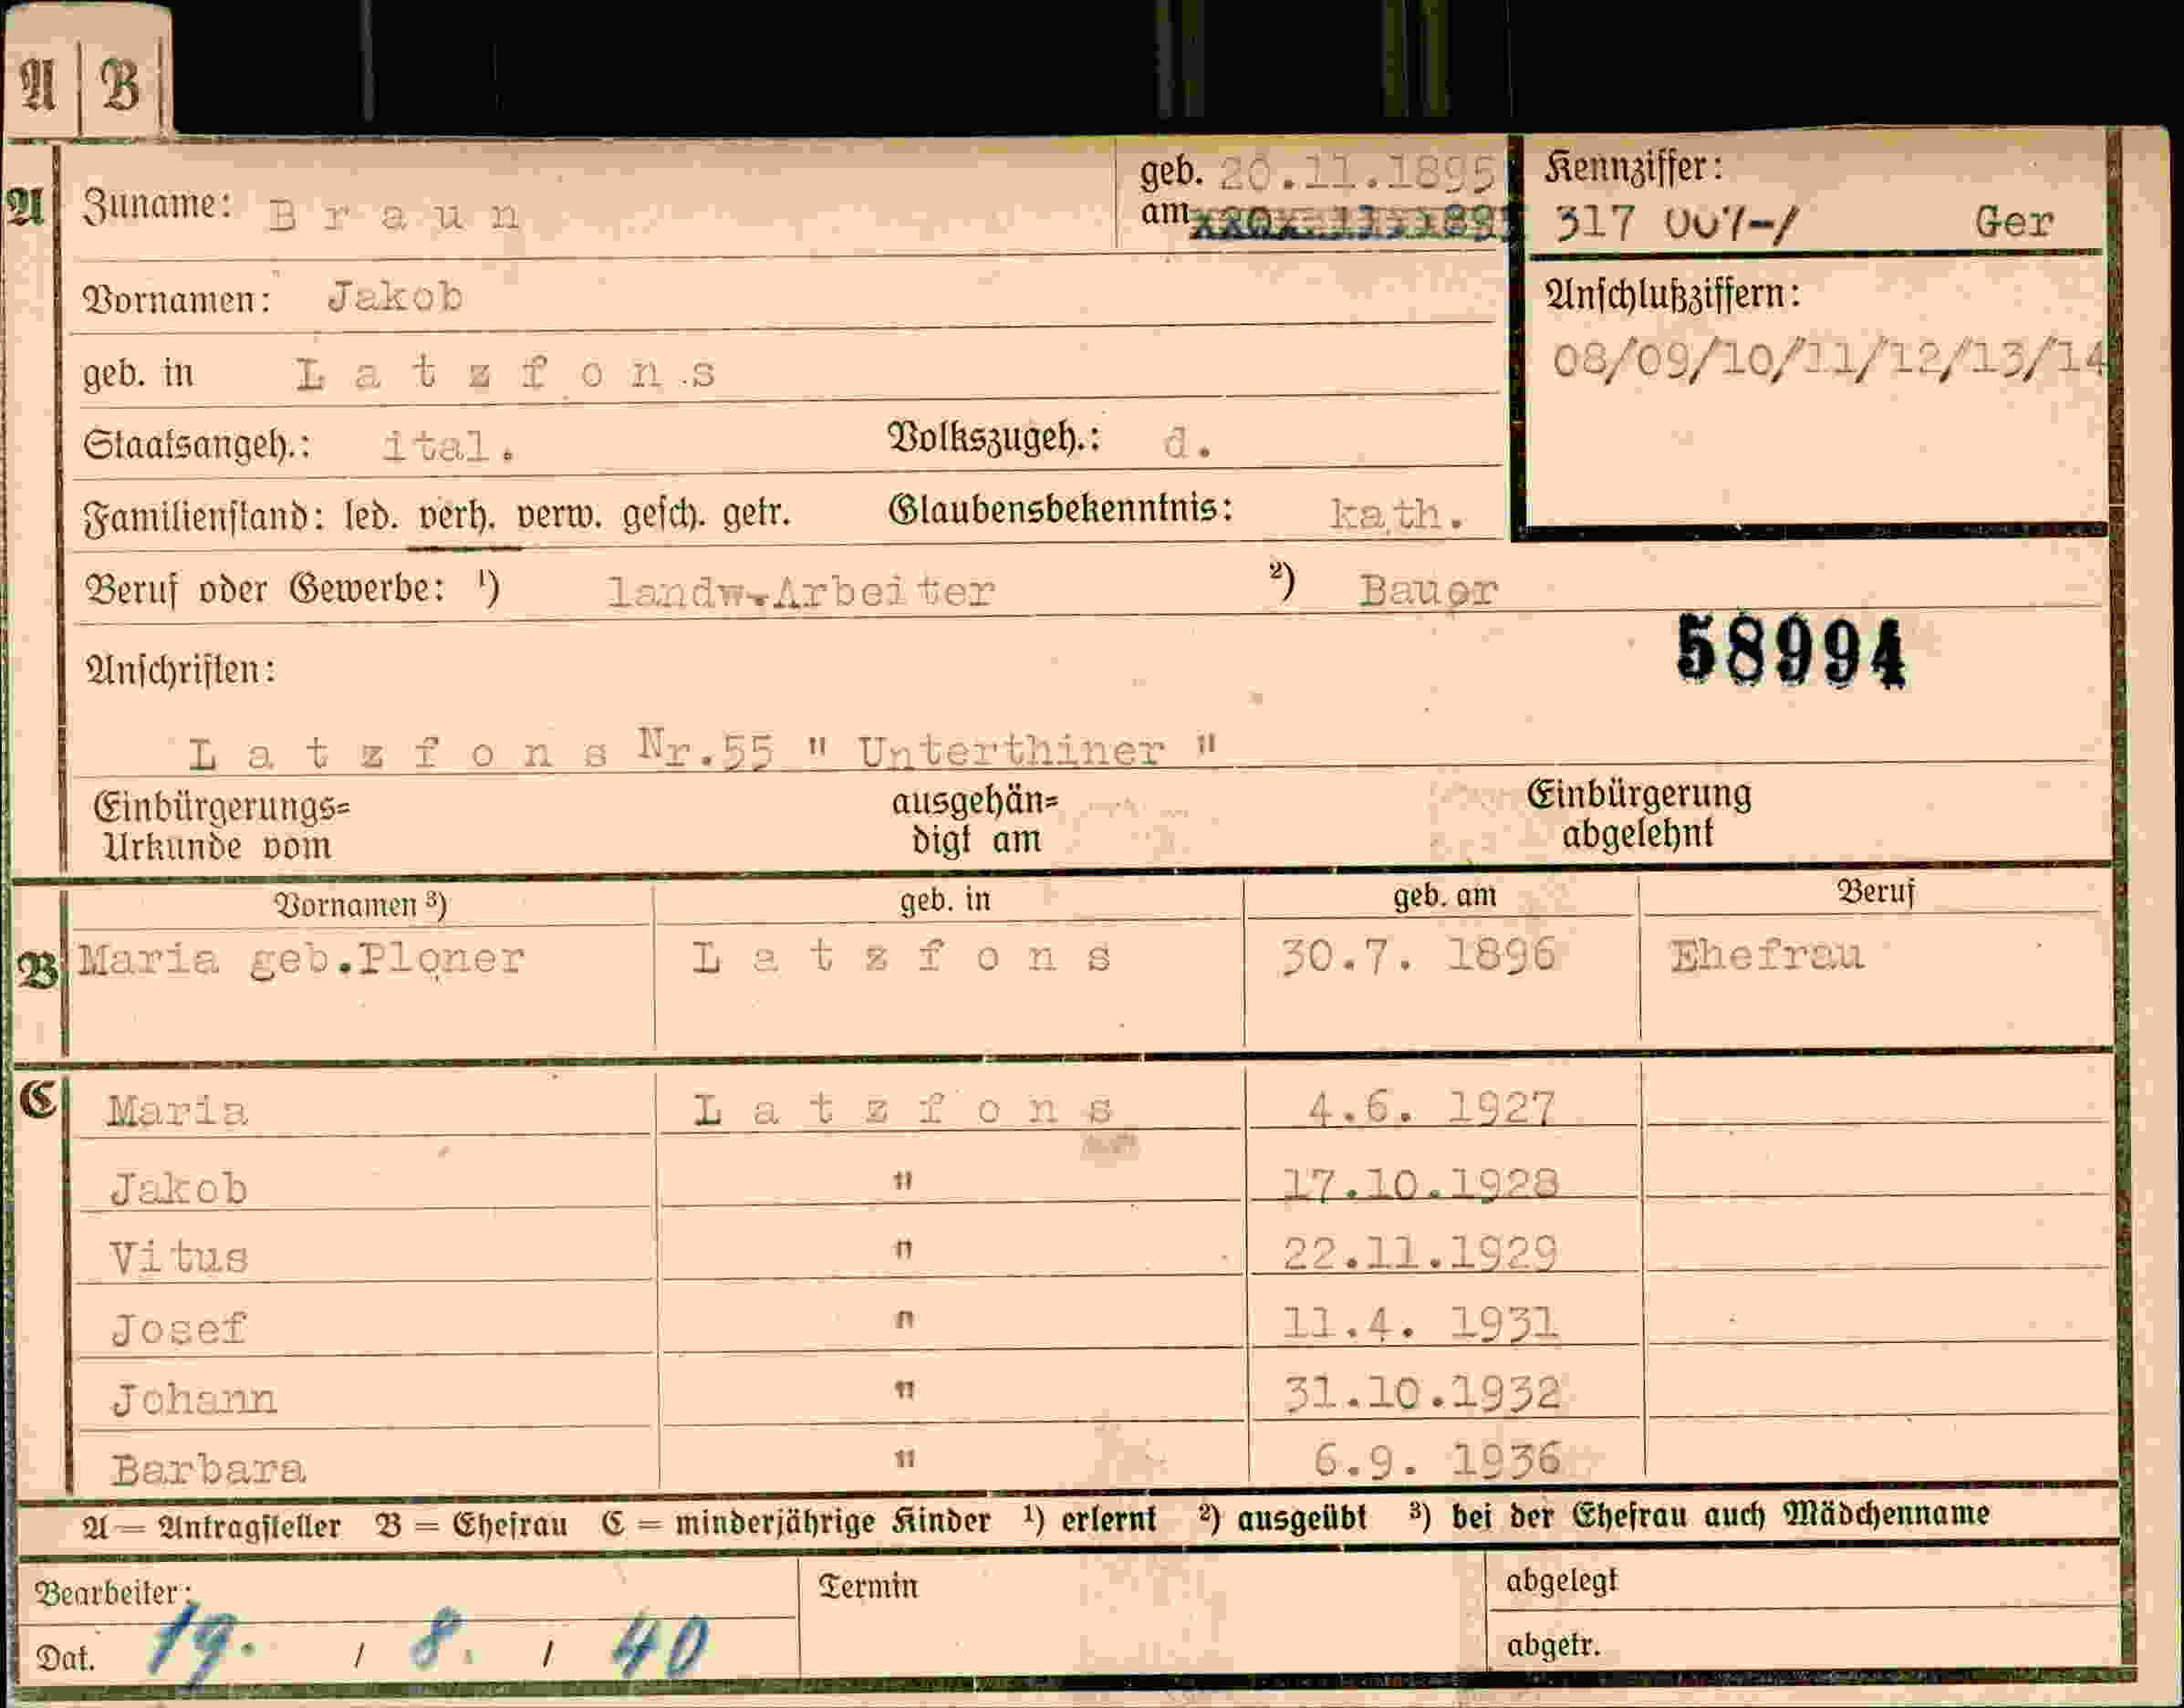 A B
A Zuname: Braun geb. am 20.11.1895
Kennziffer:
317 007-/ Ger
Vornamen: Jakob
Anschlußziffern:
08/09/10/11/12/13/14
geb. in Latzfons
Staatsangeh.: ital. Volkszugeh.: d.
Familienstand: led. verh. verw. gesch. getr. Glaubensbekenntnis: kath.
Beruf oder Gewerbe: ¹) landw.Arbeiter ²) Bauer
58994
Anschriften:
Latzfons Nr.55 " Unterthiner "
Einbürgerungs= ausgehän= Einbürgerung
Urkunde vom digt am abgelehnt
Vornamen ³) geb. in geb. am Beruf
B Maria geb.Ploner Latzfons 30.7. 1896 Ehefrau
C Maria Latzfons 4.6. 1927
Jakob " 17.10.1928
Vitus " 22.11.1929
Josef " 11.4. 1931
Johann " 31.10.1932
Barbara " 6.9. 1936
A = Antragsteller B = Ehefrau C = minderjährige Kinder ¹) erlernt ²) ausgeübt ³) bei der Ehefrau auch Mädchenname
Bearbeiter: Termin abgelegt
Dat. 19. / 8. / 40 abgetr.